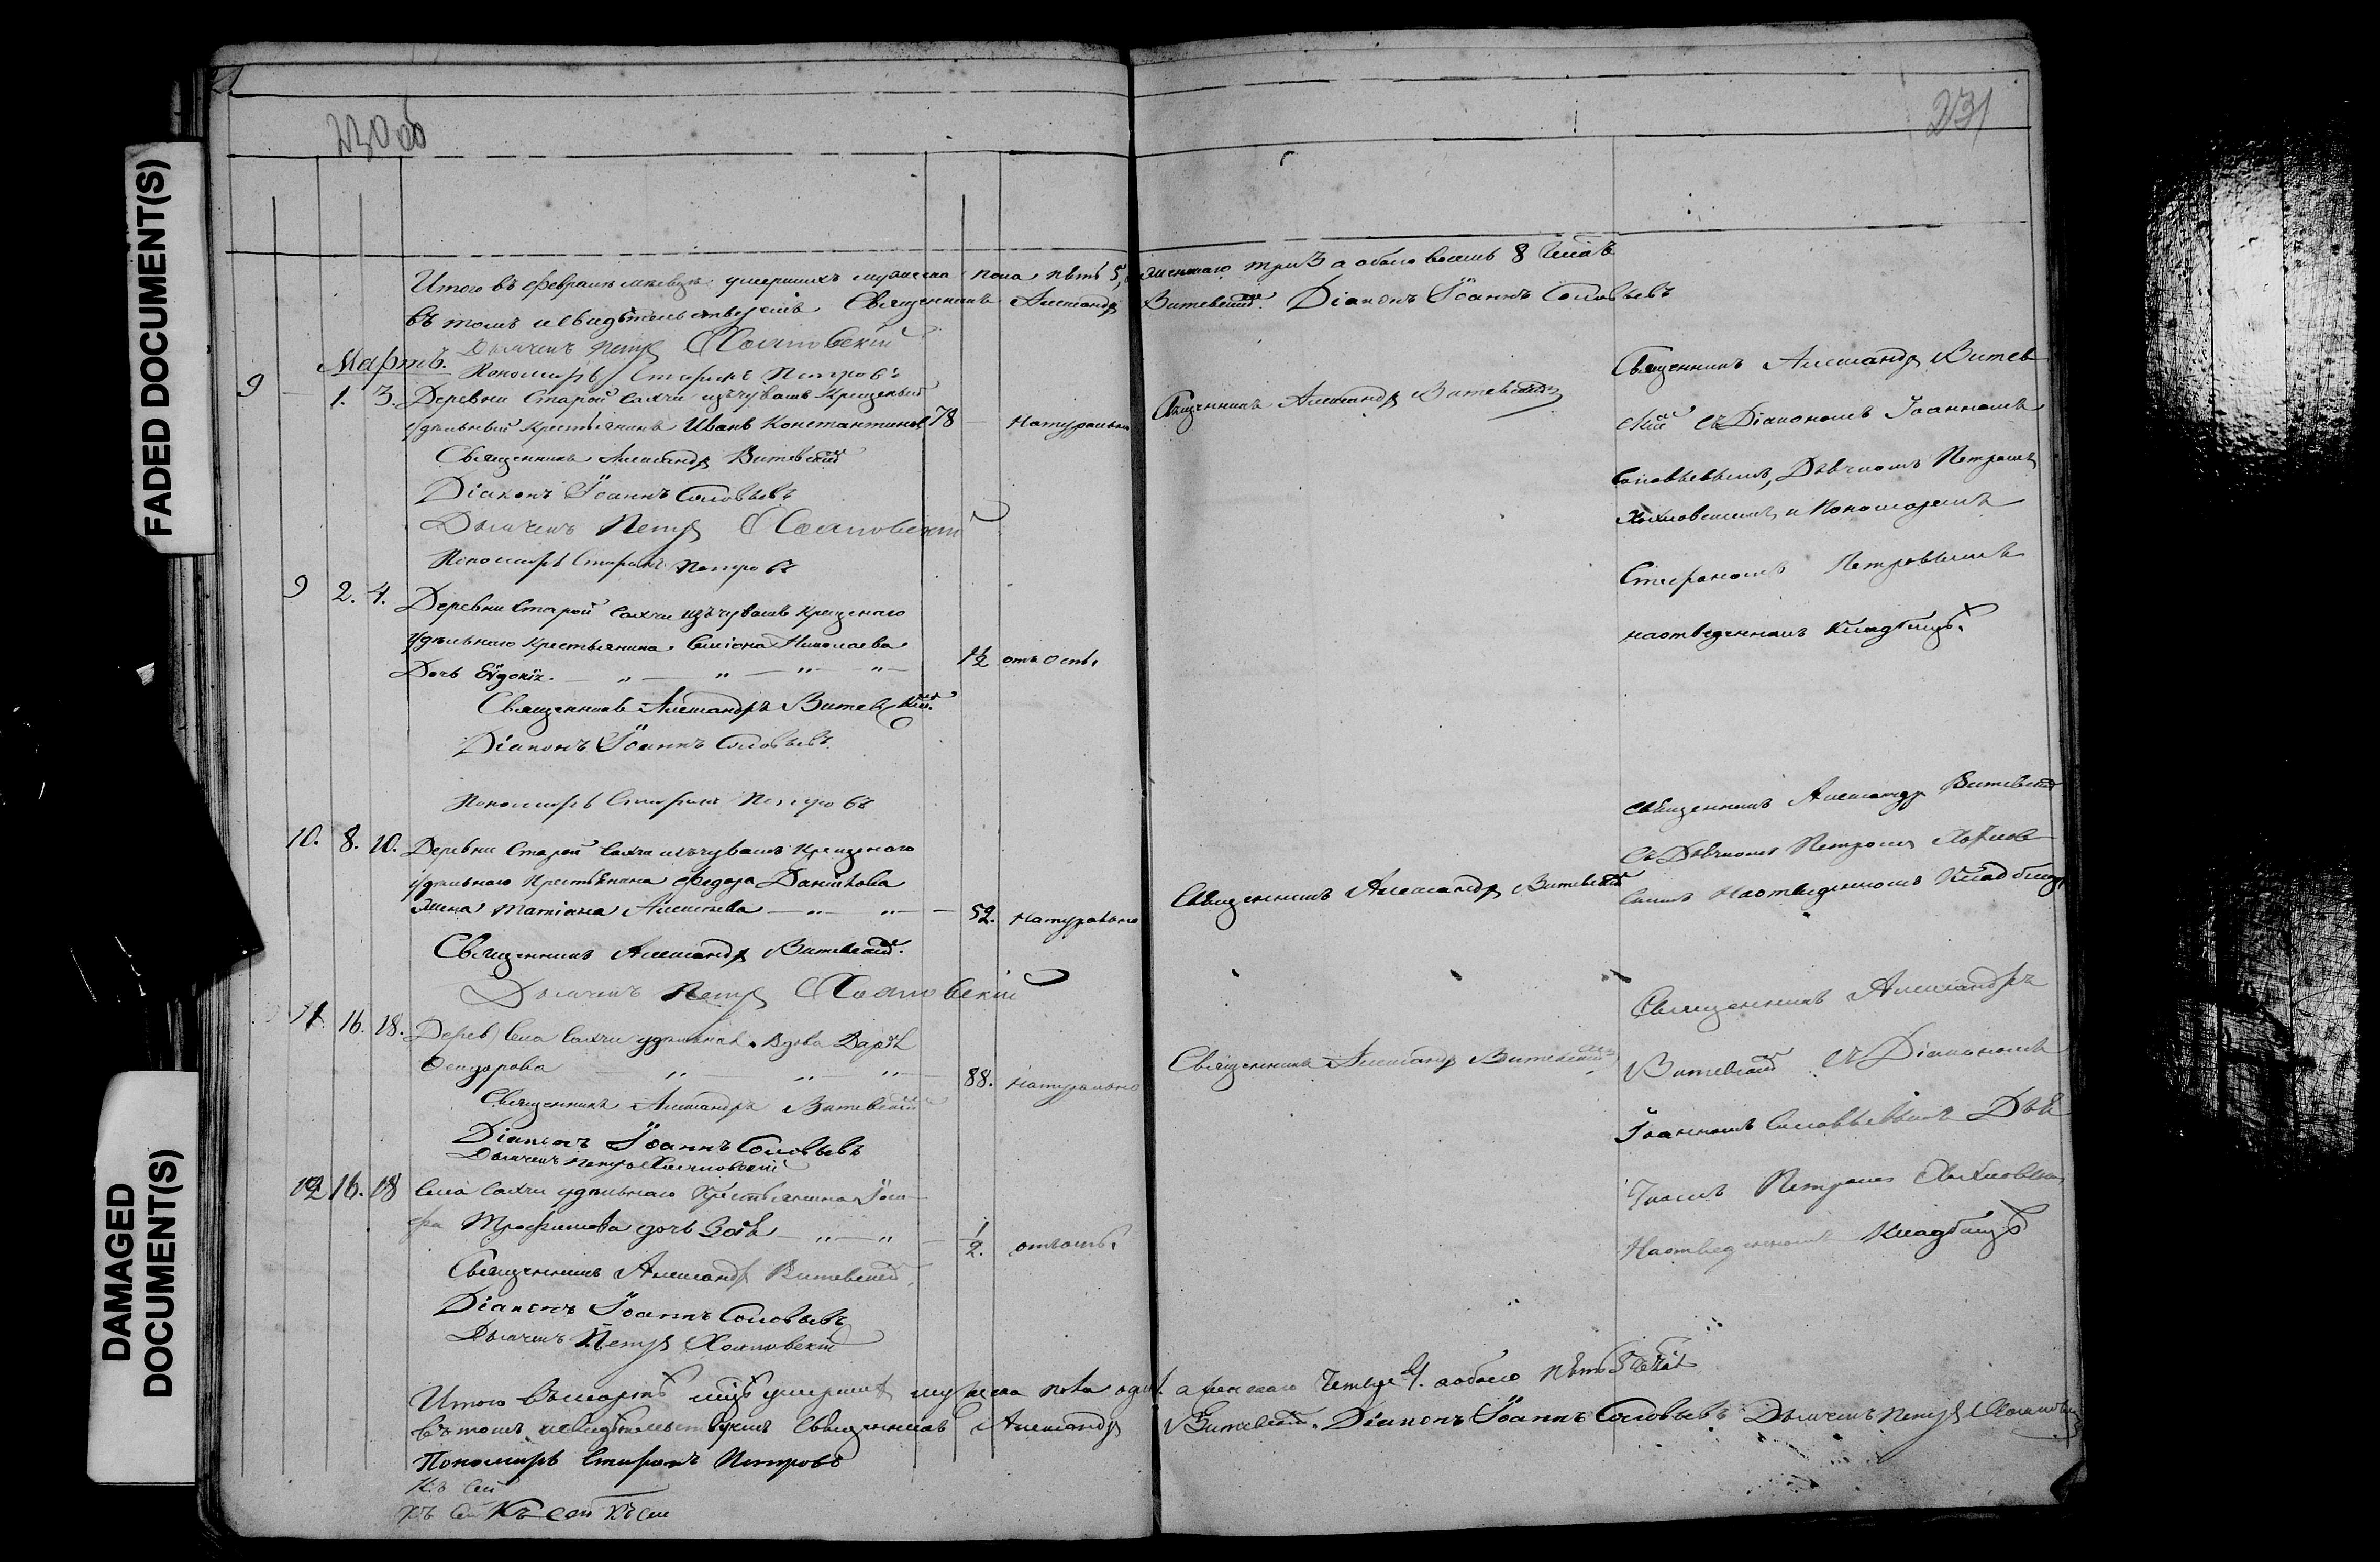 FADED DOCUMENT(S)
DAMAGED DOCUMENT(S)
230 об
231
Итого въ февралѣ умершихъ мужеска пола пять 5, женскаго три 3 а обоего восемь 8
въ томъ и свидѣтельствуемъ Священникъ Александръ Витевскій Діаконъ Іоаннъ Соловьевъ
Дьячекъ Петръ Хохловскій
Мартъ.
Пономарь Стефанъ Петровъ
9 1. 3. Деревни Старой Сахчи изъ чувашъ крещеный
удѣльный крестьянинъ Иванъ Константиновъ 78 натурально
Священникъ Александръ Витевскій
Діаконъ Іоаннъ Соловьевъ
Дьячекъ Петръ Хохловскій
Пономарь Стефанъ Петровъ
Священникъ Александръ Витевскій
Священникъ Александръ Витев
скій съ Діакономъ Іоанномъ
Соловьевымъ, Дьячкомъ Петромъ
Хохловскимъ и Пономаремъ
Стефаномъ Петровымъ
на отведенномъ кладбищѣ.
9 2. 4. Деревни Старой Сахчи изъ чувашъ крещенаго
удѣльнаго крестьянина Семіона Николаева
Дочь Евдокія. 1½ отъ оспы.
Священникъ Александръ Витевскій.
Діаконъ Іоаннъ Соловьевъ.
Пономарь Стефанъ Петровъ
10. 8. 10. Деревни Старой Сахчи изъ чувашъ крещенаго
удѣльнаго крестьянина Федора Данилова
жена Татіана Алексѣева 52. натурально
Священникъ Александръ Витевскій.
Дьячекъ Петръ Хохловскій
Священникъ Александръ Витевскій
Священникъ Александръ Витевскій
съ Дьячкомъ Петромъ Хохлов
скимъ на отведенномъ кладбищѣ
11. 16. 18. Села Сахчи удѣльная вдова Дарья
88. натурально
Священникъ Александръ Витевскій
Діаконъ Іоаннъ Соловьевъ
Дьячекъ Петръ Хохловскій
Священникъ Александръ Витевскій
Священникъ Александръ
Витевскій съ Діакономъ
Іоанномъ Соловьевымъ Дья
чкомъ Петромъ Хохловскимъ
на отведенномъ кладбищѣ
12 16. 18 Села Сахчи удѣльнаго крестьянина Іоси
фа Трофимова дочь Зоя ½. отъ оспы.
Священникъ Александръ Витевскій
Діаконъ Іоаннъ Соловьевъ
Дьячекъ Петръ Хохловскій
Итого въ мартѣ умершихъ мужеска пола одинъ 1. а женскаго четыре 4. а обоего пять 5
въ томъ и свидѣтельствуемъ Священникъ Александръ Витевскій. Діаконъ Іоаннъ Соловьевъ Дьячекъ Петръ Хохловскій
Пономарь Стефанъ Петровъ
Къ сей
Къ сей Къ сей Къ сей